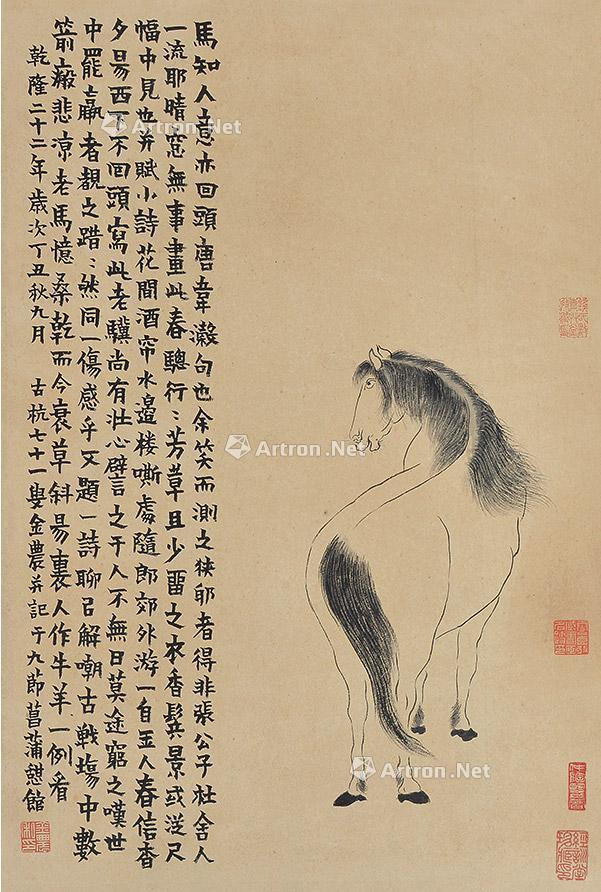 馬知人意亦回頭唐韋澱句也余笑而測之狹邪者得非張公子杜舍人
一流耶晴窓無事畫此春驄行〻芳草且少畱之衣香鬂景或從尺
幅中見也并賦小詩花間酒帘水邉楼嘶處隨郎郊外游一自玉人春信杳
夕昜西下不回頭寫此老驥尚有壮心譬言之于人不無日莫途窮之嘆世
中罷羸者覩之踖〻然同一傷感乎又題一詩聊㠯解嘲古戰塲中數
箭瘢悲凉老馬憶桑乾而今衰草斜昜裏人作牛羊一例看
乾隆二十二年歲次丁丑秋九月 古杭七十一叟金農并記于九節菖蒲憩館
Artron.Net
Artron.Net
Artron.Net